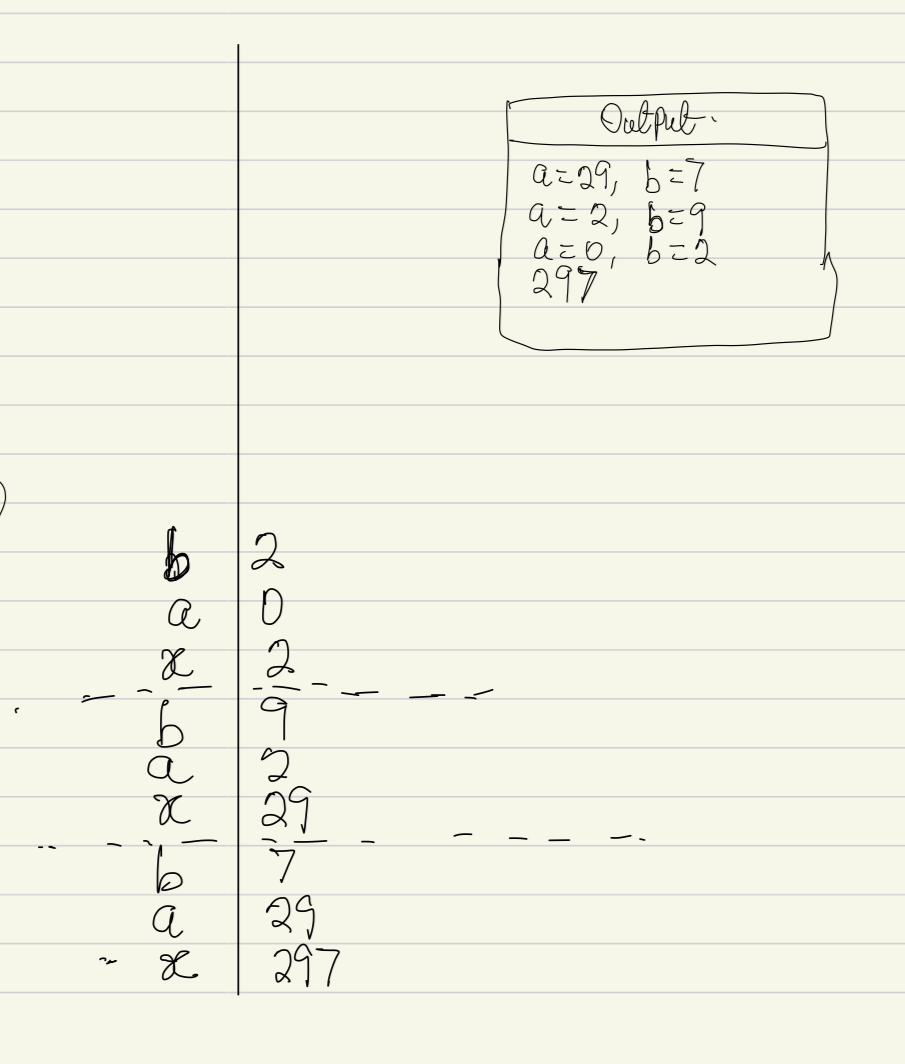 Output.
a=29, b=7
a=2, b=9
a=0, b=2
297
b 2
a 0
x 2
b 9
a 2
x 29
b 7
a 29
x 297